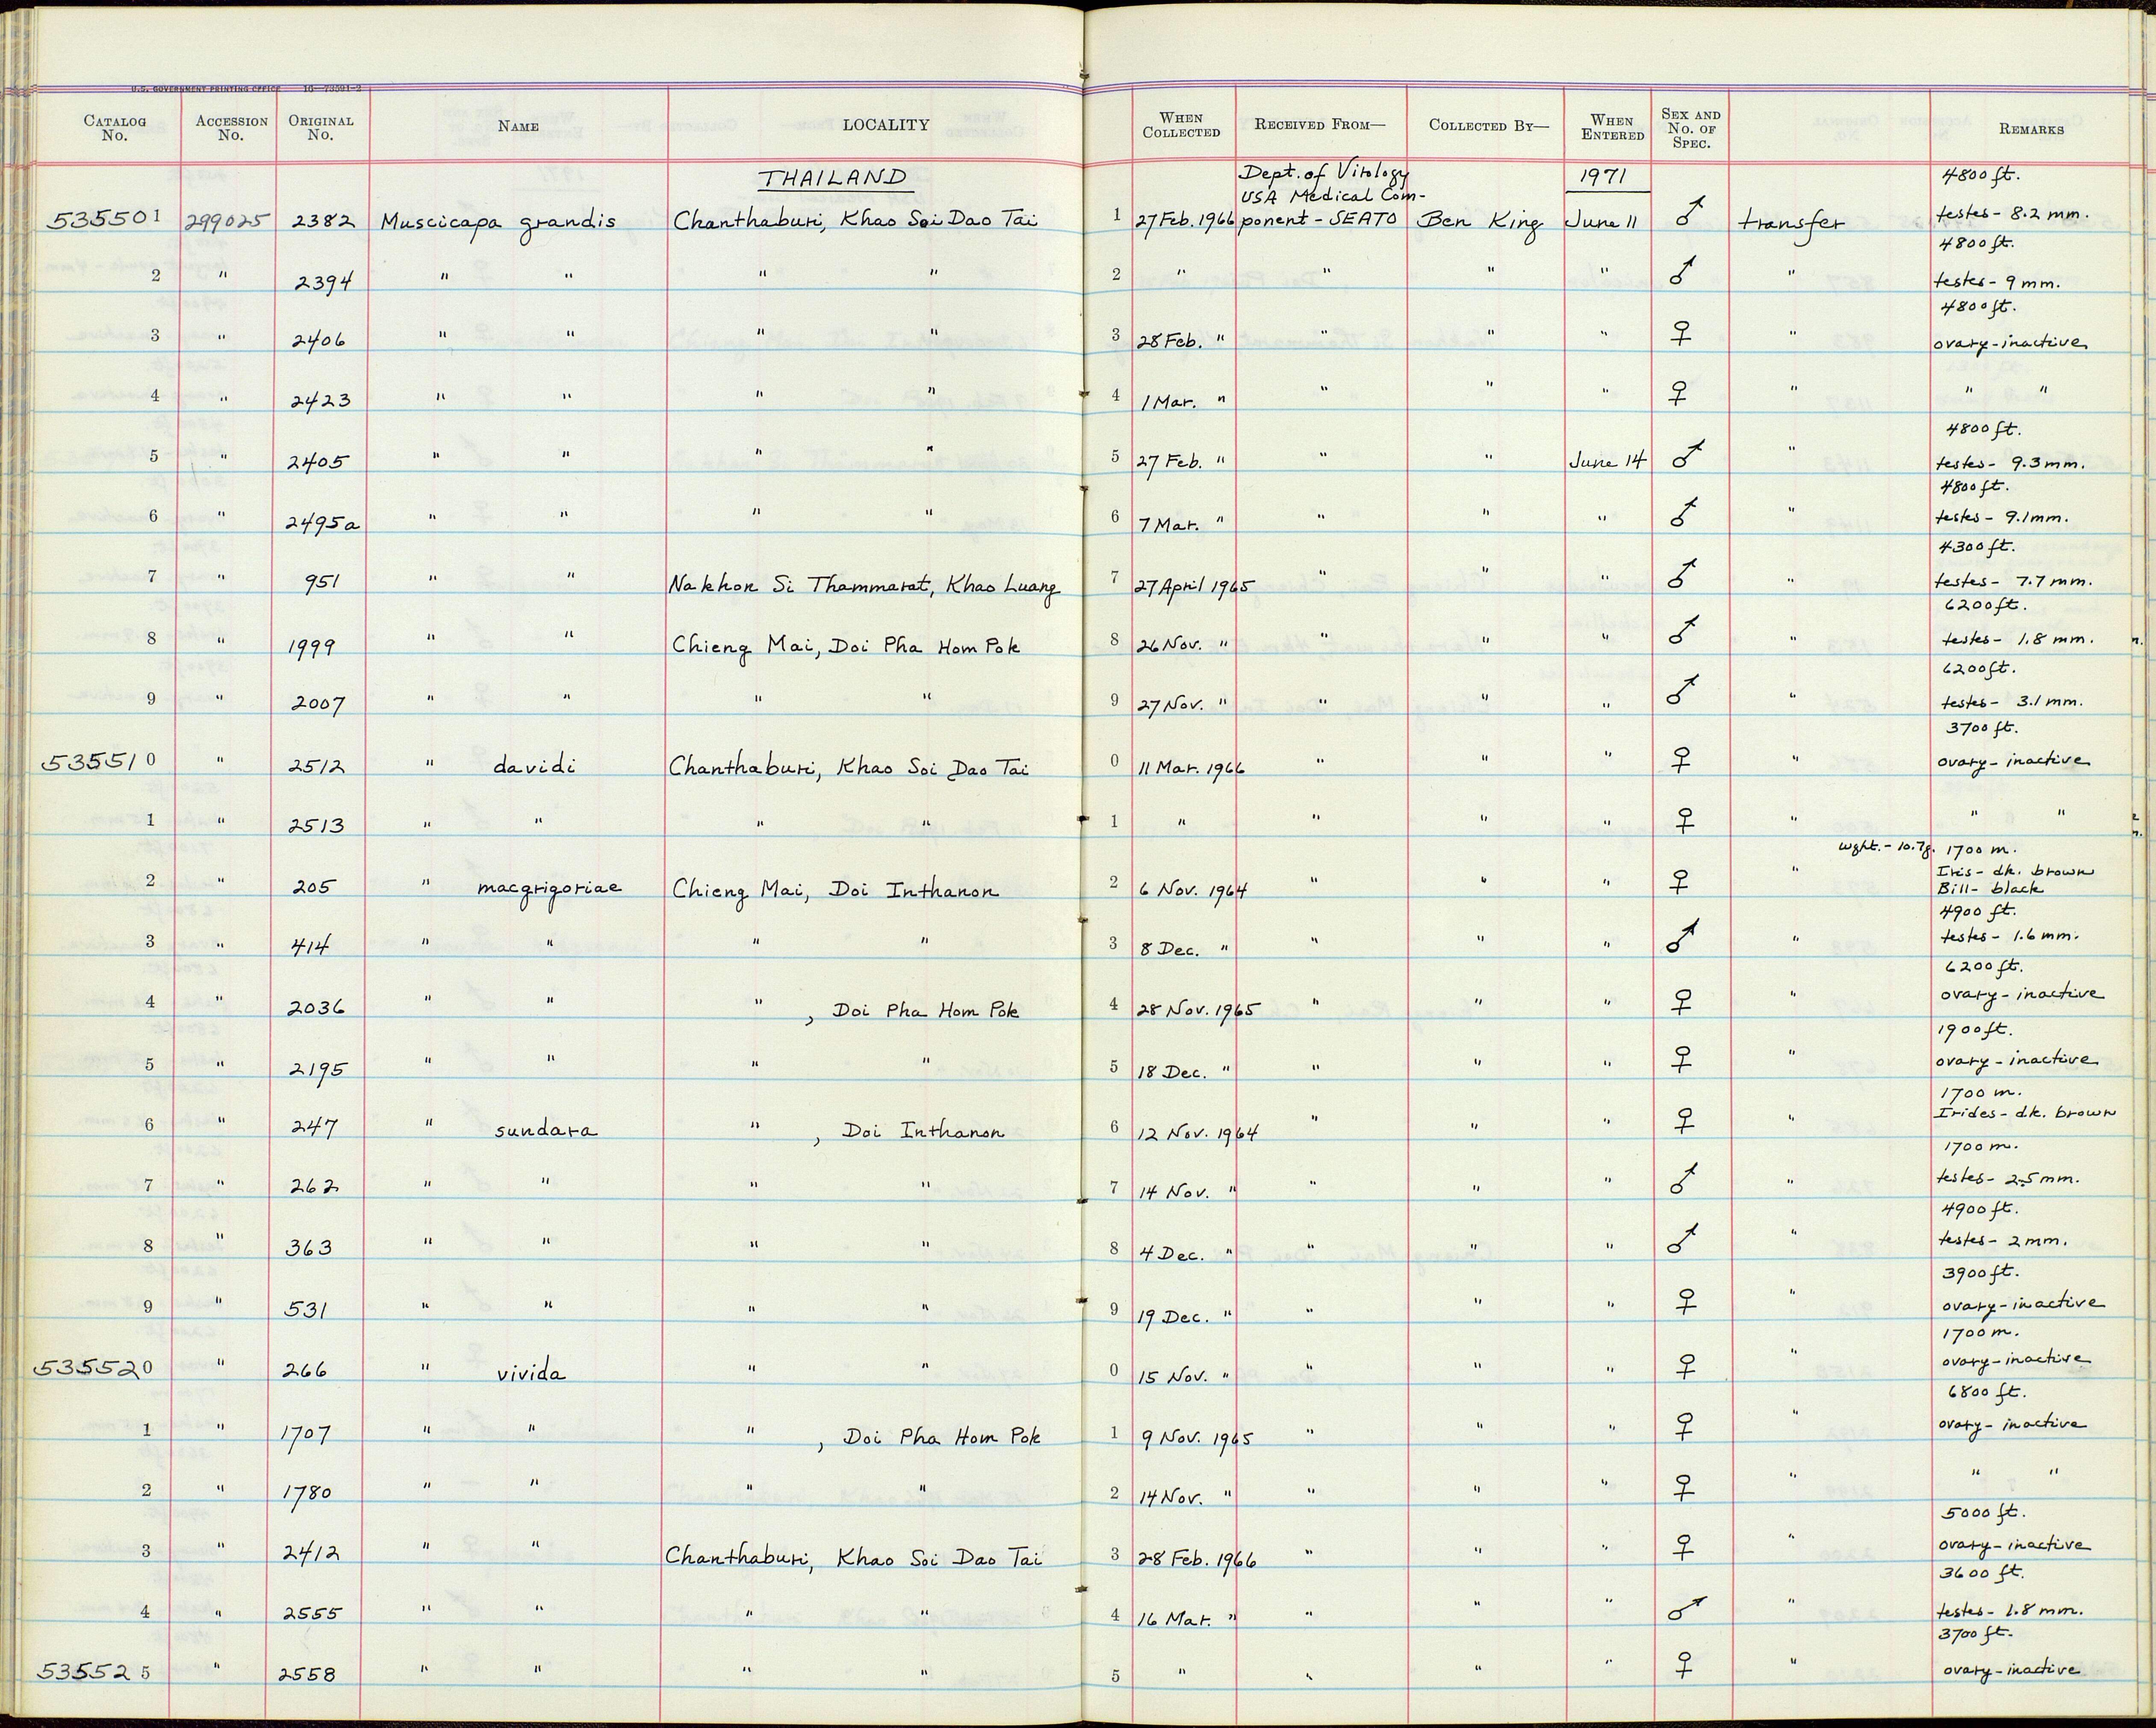 U.S. GOVERNMENT PRINTING OFFICE 16—73591-2
CATALOG No. ACCESSION No. ORIGINAL No. NAME LOCALITY WHEN COLLECTED RECEIVED FROM— COLLECTED BY— WHEN ENTERED SEX AND No. OF SPEC. REMARKS
THAILAND Dept. of Virology 1971 4800 ft.
USA Medical Com-
535501 299025 2382 Muscicapa grandis Chanthaburi, Khao Soi Dao Tai 1 27 Feb. 1966 ponent - SEATO Ben King June 11 ♂ transfer testes - 8.2 mm.
4800 ft.
2 " 2394 " " " " 2 " " " " ♂ " testes - 9 mm.
4800 ft.
3 " 2406 " " " " 3 28 Feb. " " " " ♀ " ovary - inactive
4 " 2423 " " " " 4 1 Mar. " " " " ♀ " " "
4800 ft.
5 " 2405 " " " " 5 27 Feb. " " " June 14 ♂ " testes - 9.3 mm.
4800 ft.
6 " 2495a " " " " 6 7 Mar. " " " " ♂ " testes - 9.1 mm.
4300 ft.
7 " 951 " " Nakhon Si Thammarat, Khao Luang 7 27 April 1965 " " " ♂ " testes - 7.7 mm.
6200 ft.
8 " 1999 " " Chieng Mai, Doi Pha Hom Pok 8 26 Nov. " " " " ♂ " testes - 1.8 mm.
6200 ft.
9 " 2007 " " " " 9 27 Nov. " " " " ♂ " testes - 3.1 mm.
3700 ft.
535510 " 2512 " davidi Chanthaburi, Khao Soi Dao Tai 0 11 Mar. 1966 " " " ♀ " ovary - inactive
1 " 2513 " " " " 1 " " " " ♀ " " "
wght. - 10.7g. 1700 m.
Iris - dk. brown
2 " 205 " macgrigoriae Chieng Mai, Doi Inthanon 2 6 Nov. 1964 " " " ♀ " Bill - black
4900 ft.
3 " 414 " " " " 3 8 Dec. " " " " ♂ " testes - 1.6 mm.
6200 ft.
4 " 2036 " " " , Doi Pha Hom Pok 4 28 Nov. 1965 " " " ♀ " ovary - inactive
1900 ft.
5 " 2195 " " " " 5 18 Dec. " " " " ♀ " ovary - inactive
1700 m.
6 " 247 " sundara " , Doi Inthanon 6 12 Nov. 1964 " " " ♀ " Irides - dk. brown
1700 m.
7 " 262 " " " " 7 14 Nov. " " " " ♂ " testes - 2.5 mm.
4900 ft.
8 " 363 " " " " 8 4 Dec. " " " " ♂ " testes - 2 mm.
3900 ft.
9 " 531 " " " " 9 19 Dec. " " " " ♀ " ovary - inactive
1700 m.
535520 " 266 " vivida " " 0 15 Nov. " " " " ♀ " ovary - inactive
6800 ft.
1 " 1707 " " " , Doi Pha Hom Pok 1 9 Nov. 1965 " " " ♀ " ovary - inactive
2 " 1780 " " " " 2 14 Nov. " " " " ♀ " " "
5000 ft.
3 " 2412 " " Chanthaburi, Khao Soi Dao Tai 3 28 Feb. 1966 " " " ♀ " ovary - inactive
3600 ft.
4 " 2555 " " " " 4 16 Mar. " " " " ♂ " testes - 1.8 mm.
3700 ft.
535525 " 2558 " " " " 5 " " " " ♀ " ovary - inactive